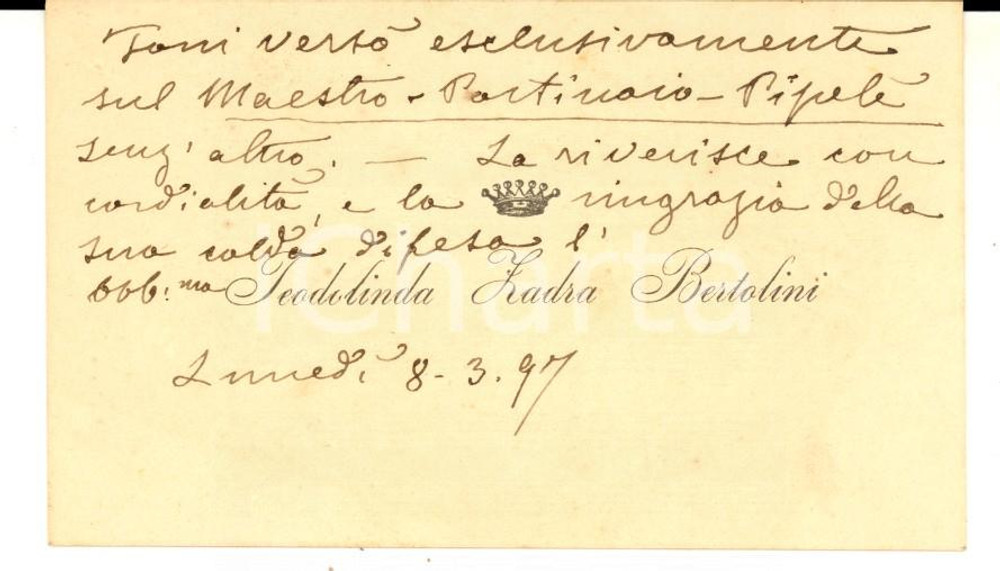 Toni versò esclusivamente
sul Maestro - Portinaio - Pipelè
senz'altro. — La riverisce con
cordialità, e la ringrazia della
sua calda difesa l'
obb.ma Teodolinda Zadra Bertolini
Lunedì 8-3.97
iCharta